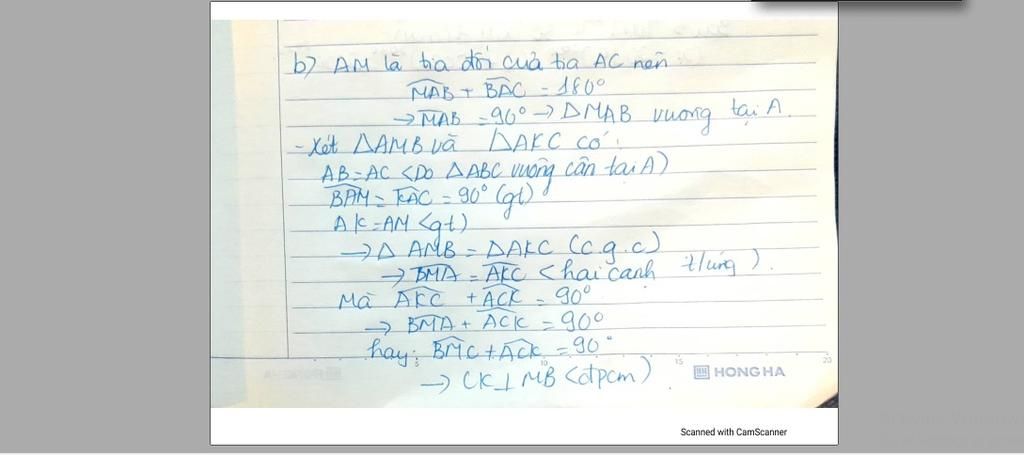 b) AM là tia đối của tia AC nên
MAB + BAC = 180°
→ MAB = 90° → ΔMAB vuông tại A.
- Xét ΔAMB và ΔAKC có:
AB = AC <Do ΔABC vuông cân tại A)
BAM = KAC = 90° (gt)
AK = AM <gt)
→ Δ AMB = ΔAKC (c.g.c)
→ BMA = AKC <hai cạnh t/ứng).
Mà AKC + ACK = 90°
→ BMA + ACK = 90°
hay: BMC + ACK = 90°
→ CK ⊥ MB <đpcm)
5 10 15 20
HONG HA
Scanned with CamScanner